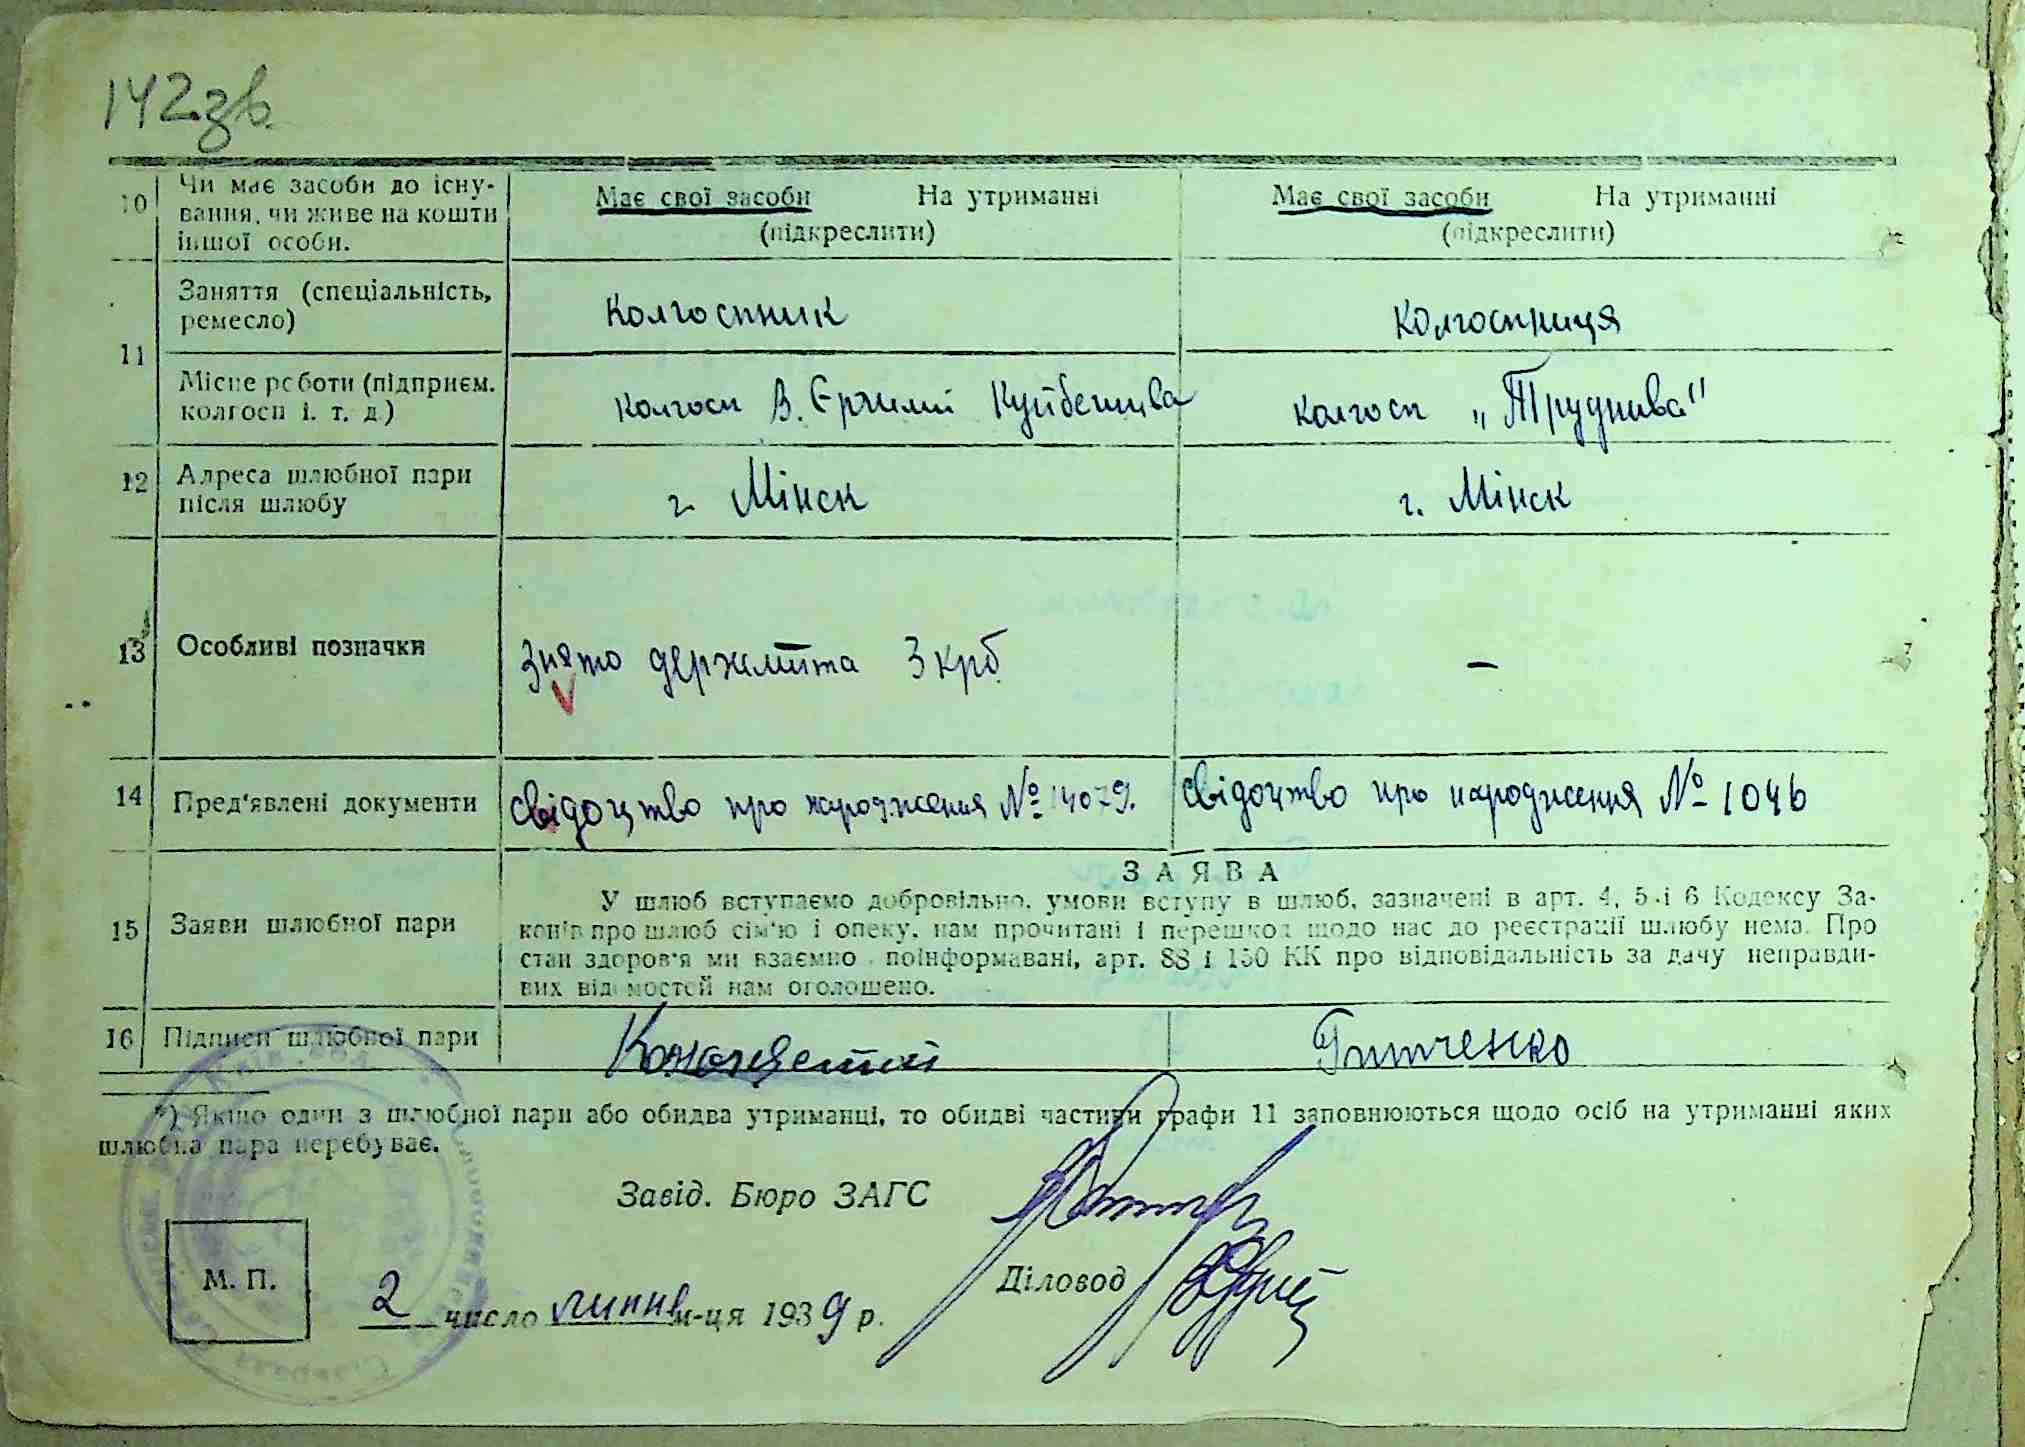 142зв.
10 Чи має засоби до існу-
вання, чи живе на кошти
іншої особи.
Має свої засоби На утриманні
(підкреслити)
Має свої засоби На утриманні
(підкреслити)
11
Заняття (спеціальність,
ремесло)
колгоспник
колгоспниця
Місце роботи (підприєм.
колгосп і. т. д.)
колгосп В. Куйбешива
колгосп „Труднива"
12 Адреса шлюбної пари
після шлюбу
г. Мінск
г. Мінск
13 Особливі позначки
Знято держмита 3 крб
–
14 Пред'явлені документи
свідоцтво про народження № 14079.
свідоцтво про народження № 1046
15 Заяви шлюбної пари
ЗАЯВА
У шлюб вступаємо добровільно, умови вступу в шлюб, зазначені в арт. 4, 5 і 6 Кодексу За-
конів про шлюб сім'ю і опеку, нам прочитані і перешкод щодо нас до реєстрації шлюбу нема. Про
стан здоров'я ми взаємно поінформавані, арт. 88 і 150 КК про відповідальність за дачу неправди-
вих відомостей нам оголошено.
16 Підписи шлюбної пари
*) Якщо один з шлюбної пари або обидва утриманці, то обидві частини графи 11 заповнюються щодо осіб на утриманні яких
шлюбна пара перебуває.
Завід. Бюро ЗАГС
Діловод
М. П.
2 число липня м-ця 1939 р.